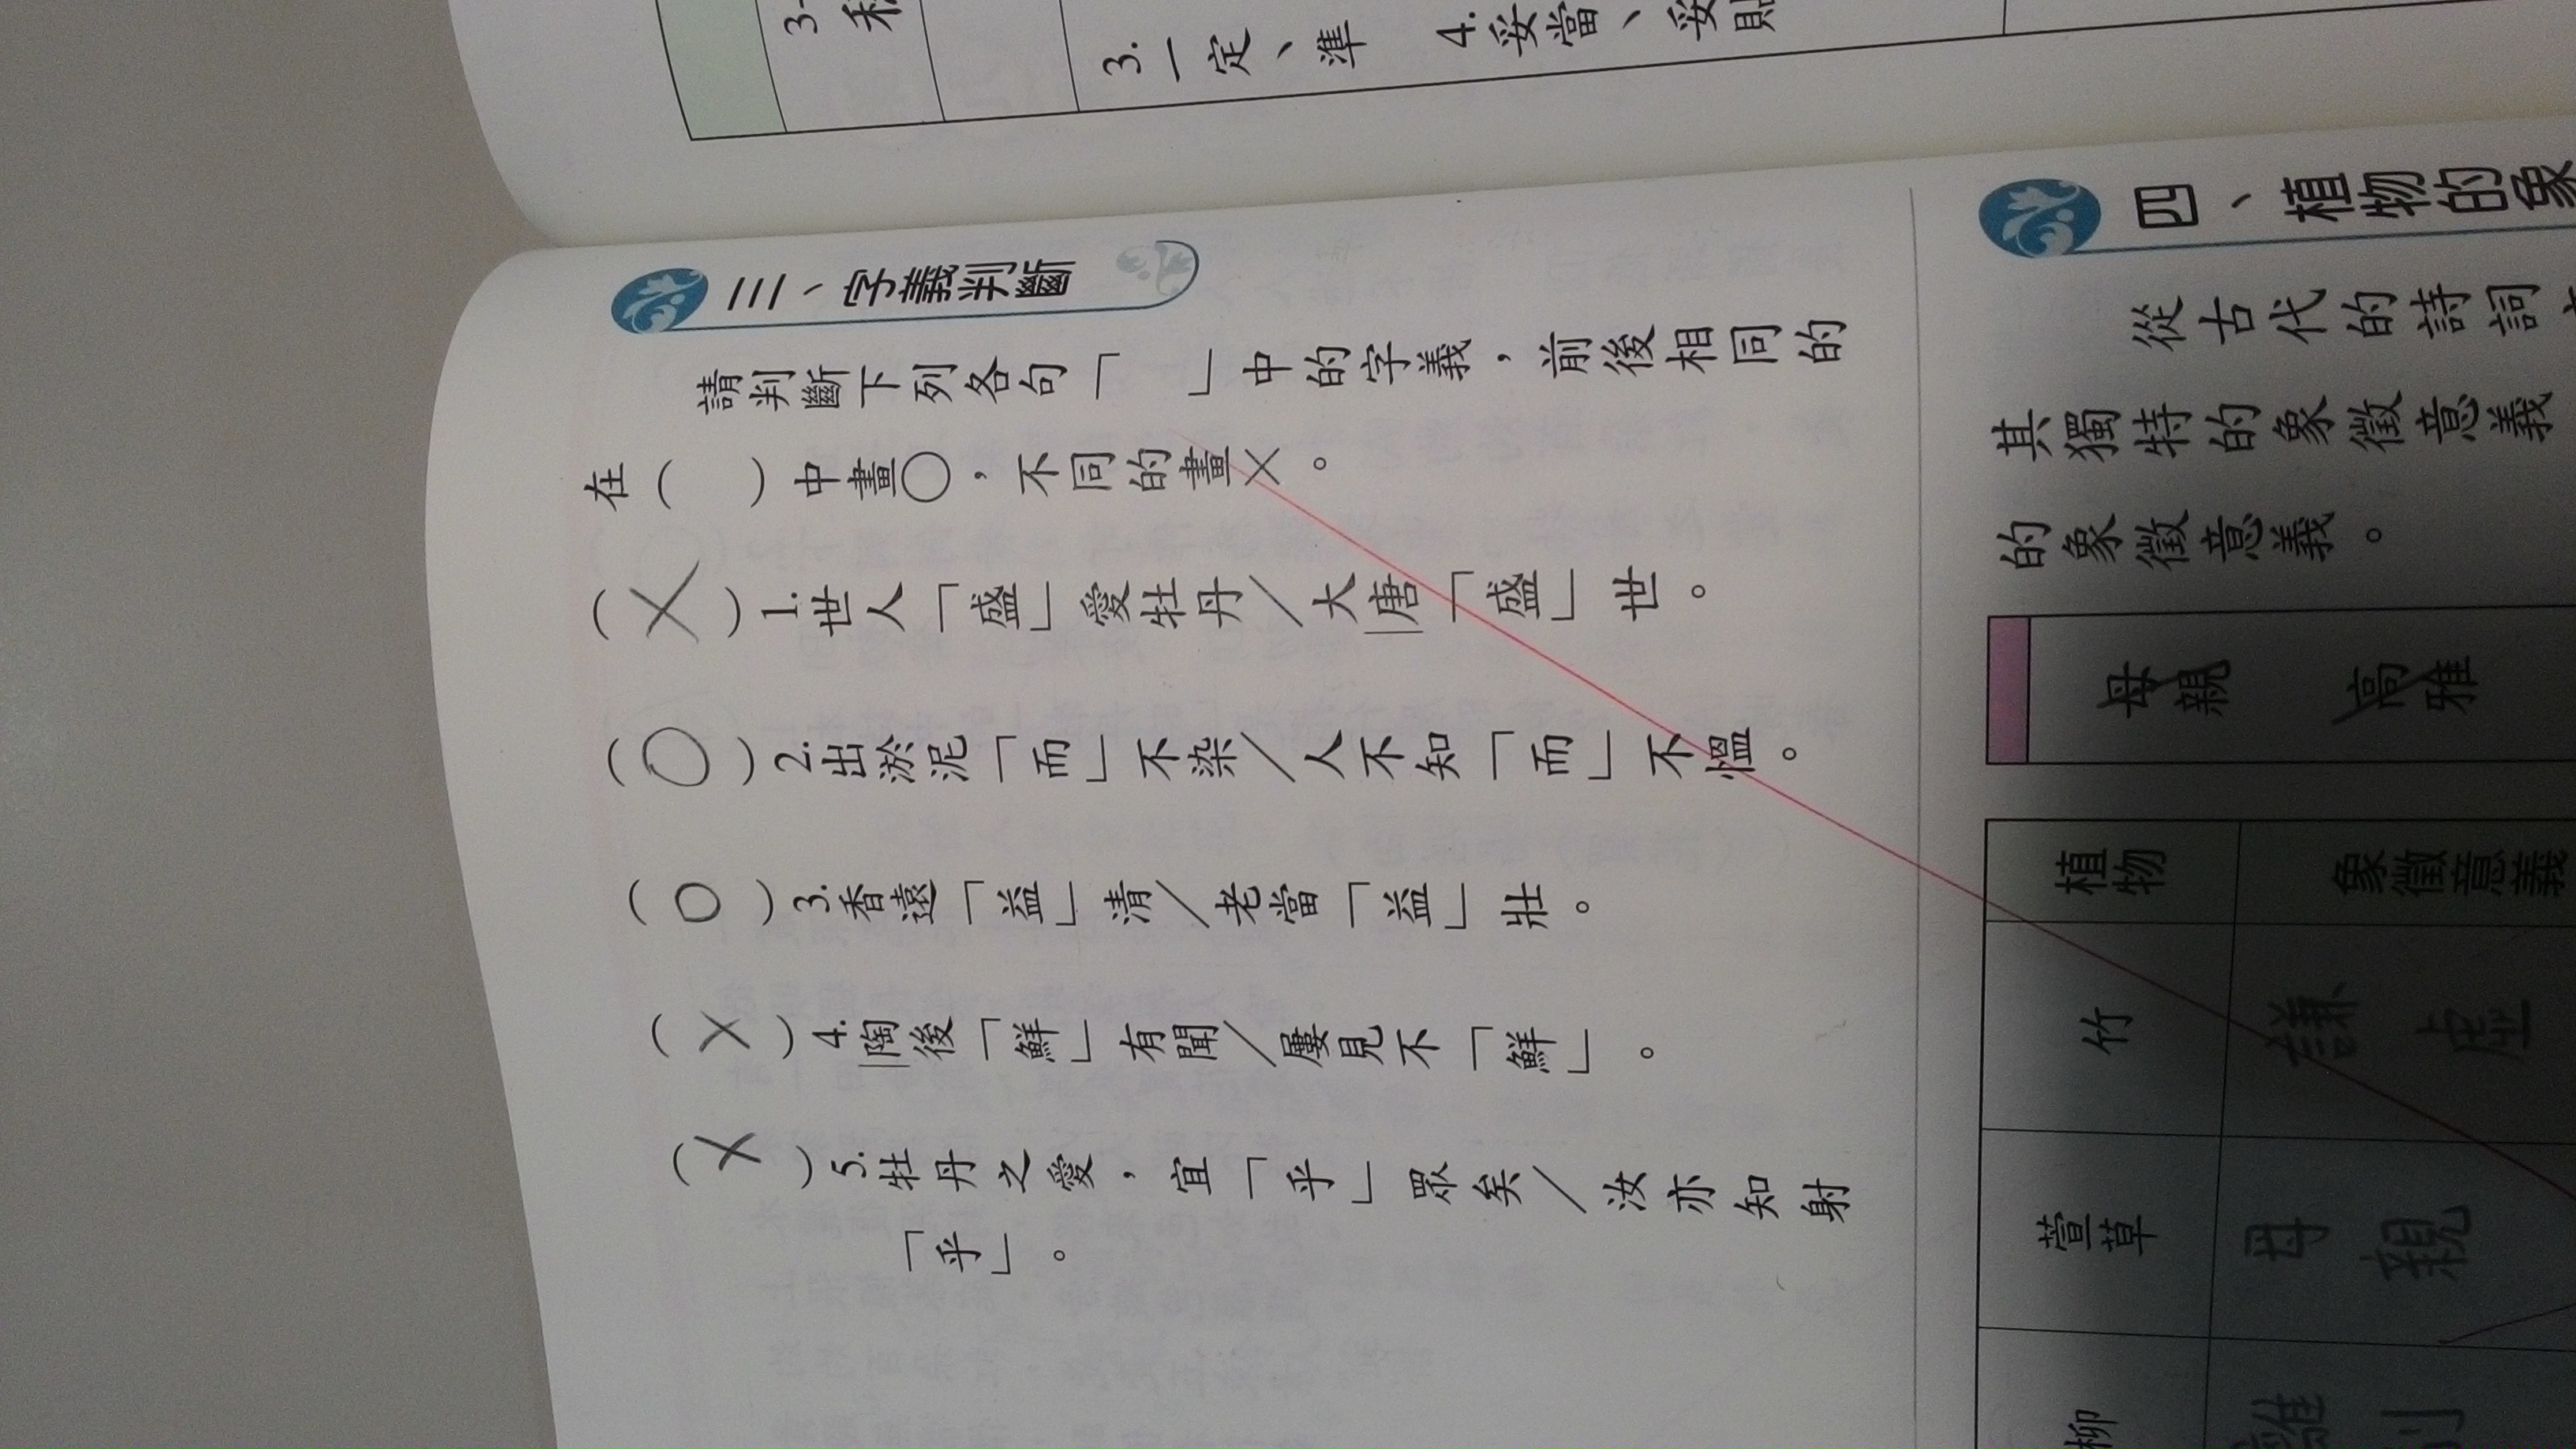 3.一定、準　4.妥當、妥貼
三、字義判斷
請判斷下列各句「　」中的字義，前後相同的
在（　）中畫○，不同的畫×。
（×）1.世人「盛」愛牡丹／大唐「盛」世。
（○）2.出淤泥「而」不染／人不知「而」不慍。
（○）3.香遠「益」清／老當「益」壯。
（×）4.陶後「鮮」有聞／屢見不「鮮」。
（×）5.牡丹之愛，宜「乎」眾矣／汝亦知射
「乎」。
四、植物的象
從古代的詩詞
其獨特的象徵意義
的象徵意義。
母親　高雅
植物　象徵意義
竹　謙虛
萱草　母親
柳　離別